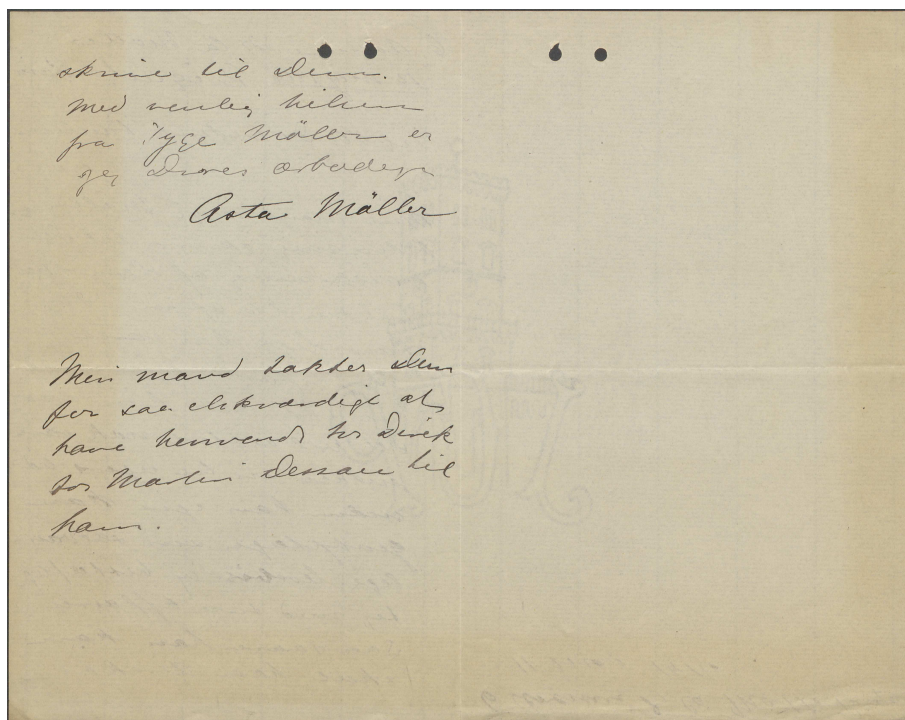 skrive til Dem.
Med venlig hilsen
fra Tyge Möller er
jeg Deres ærbødige
Asta Möller
Min mand takker Dem
for saa elskværdigt at
have henvendt
Martin Dessau til
ham.